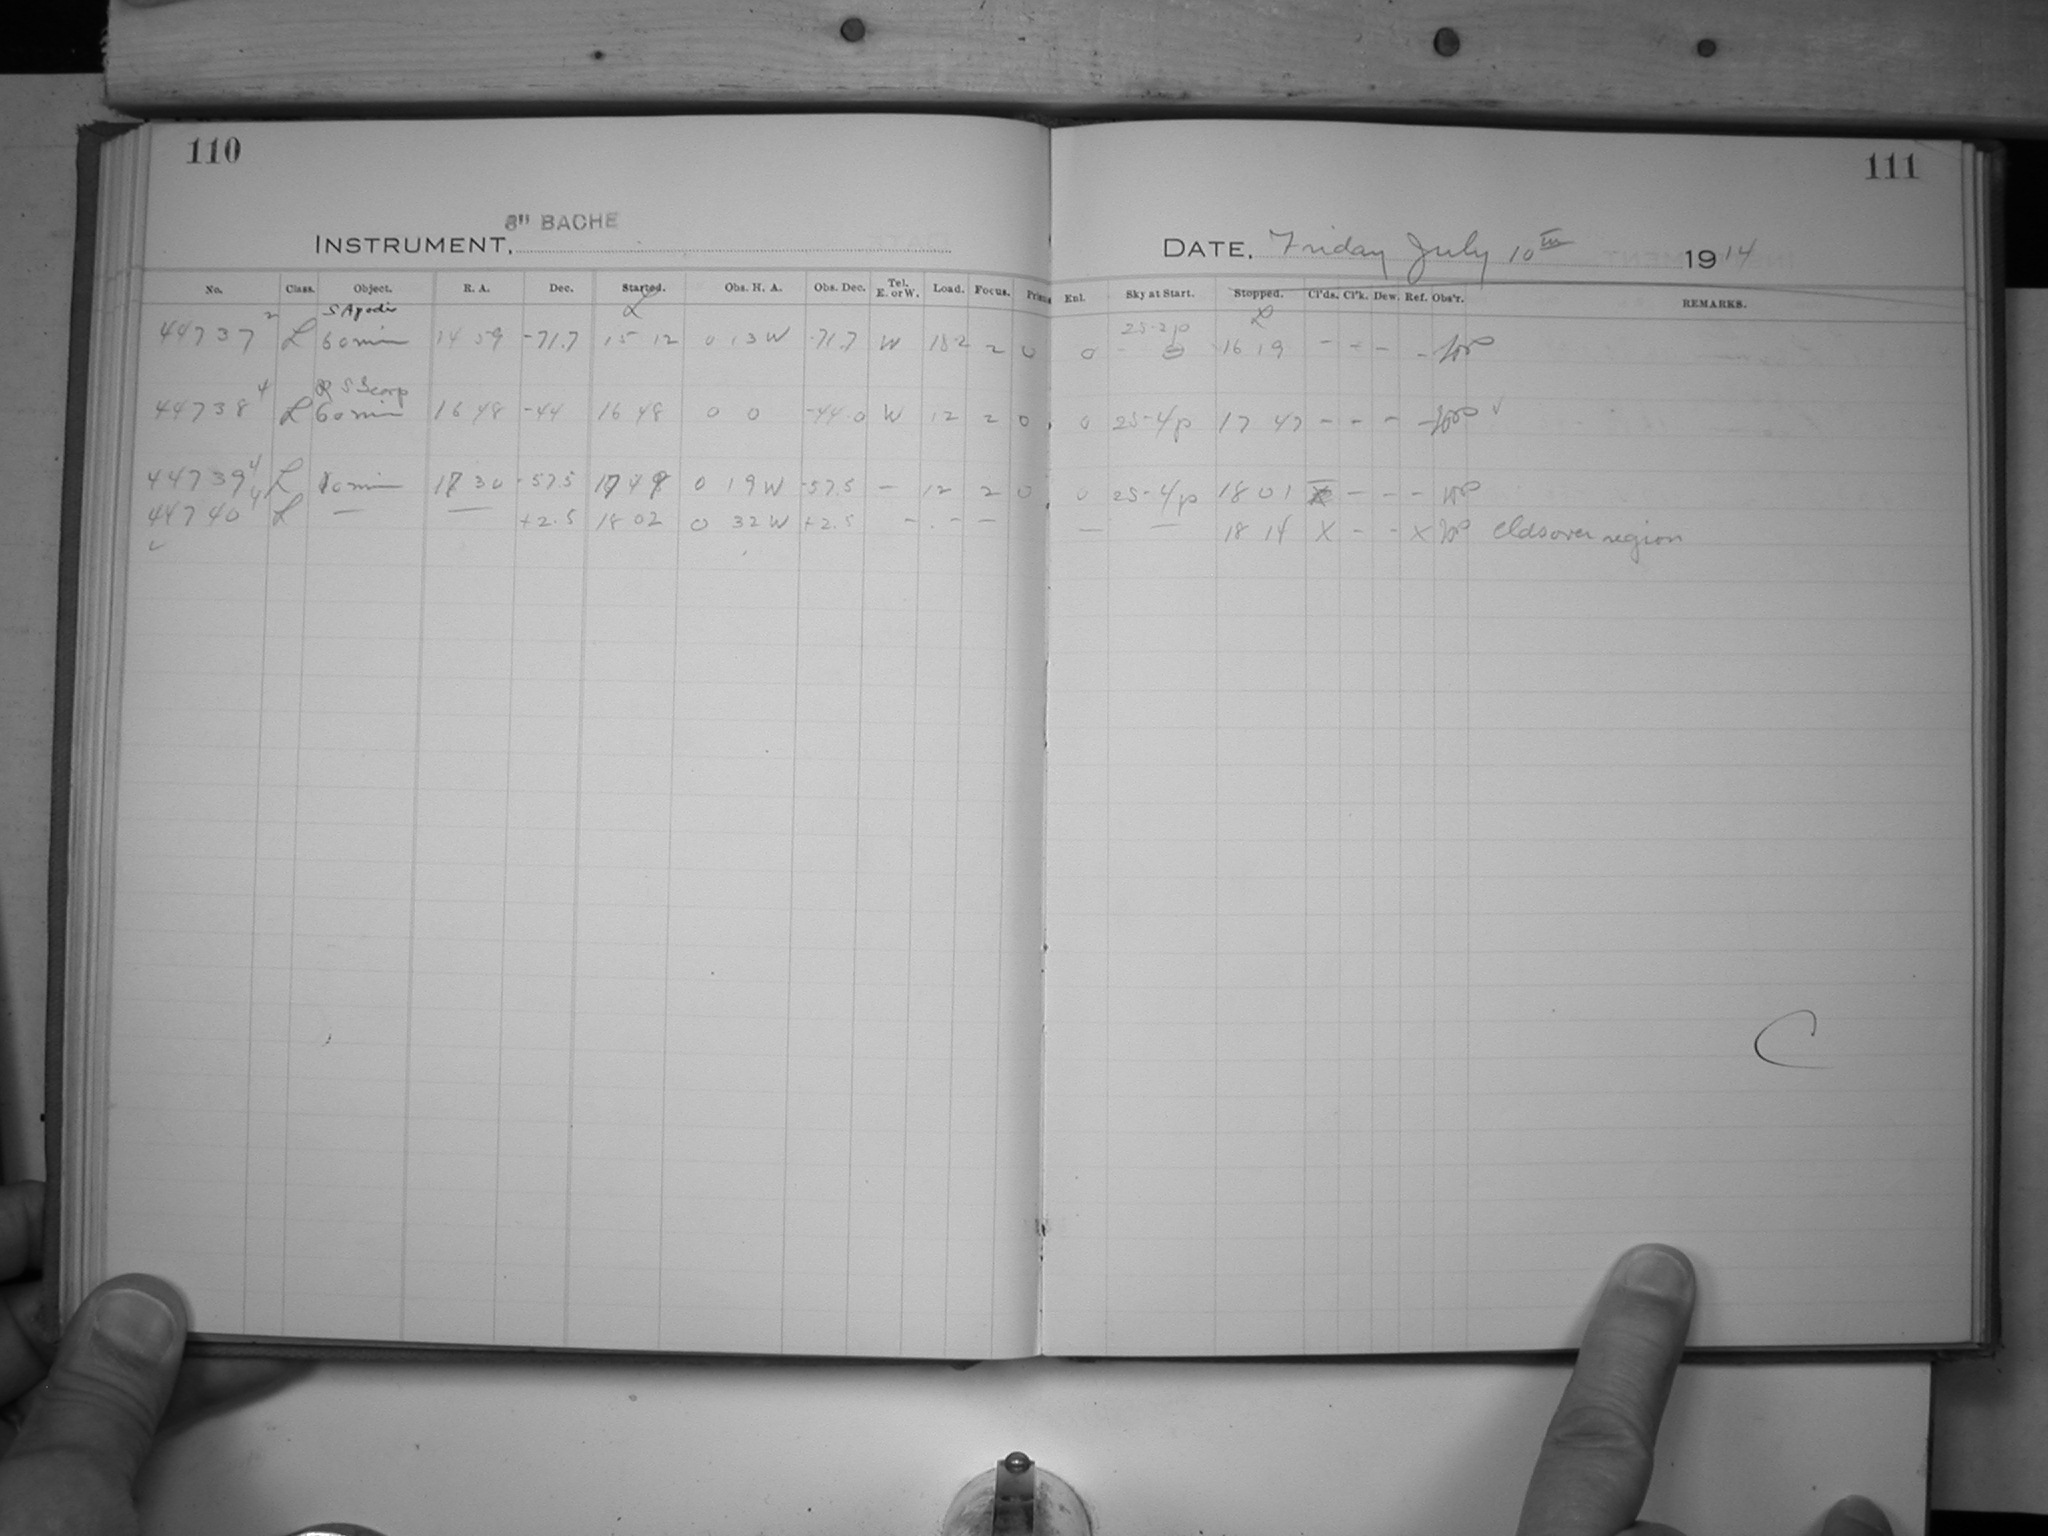 110
111
8" BACHE
INSTRUMENT,
DATE, Friday July 10th 1914
No. Class. Object. R. A. Dec. Started. Obs. H. A. Obs. Dec. Tel. E. or W. Load. Focus. Prism Exl. Sky at Start. Stopped. Cl'ds. Cl'k. Dew. Ref. Obs'r. REMARKS.
S Apodis L L
44737 2 L 60 min 14 59 -71.7 15 12 0 13 W -71.7 W 2 0 0 16 19 - - - -
R S Scorp
44738 4 L 60 min 16 48 -44 16 48 0 0 -44.0 W 12 2 0 0 25-4p 17 47 - - - -
44739 4 L 10 min 17 30 -57.5 17 49 0 19 W -57.5 - 12 2 0 0 25-4p 18 01 - - -
44740 4 L — — +2.5 18 02 0 32 W +2.5 - - - — — 18 14 X - - X clds over region
C